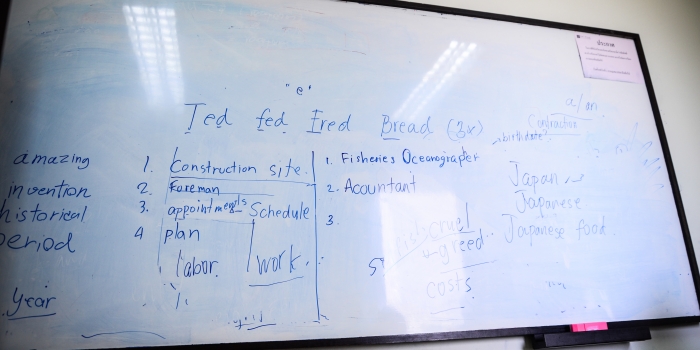 "e"
Ted fed Fred Bread (3x)
a/an
Contraction
birthdate?
amazing
invention
historical
period
year
1. Construction site.
2. Foreman
3. appointments Schedule
4 plan
labor. work.
1. Fisheries Oceanograper
2. Acountant
3.
greed
costs
Japan
Japanese
Japanese food